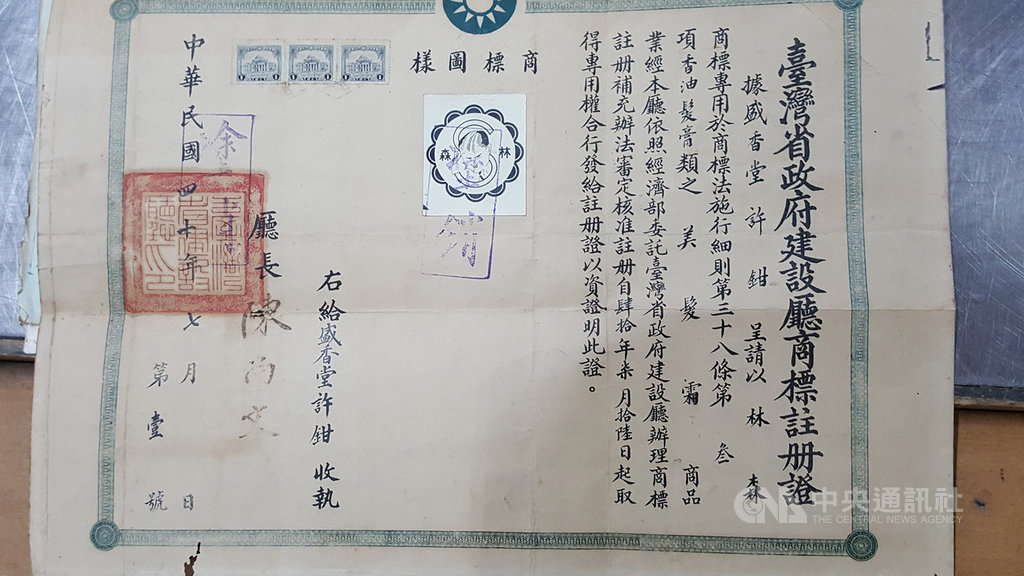 臺灣省政府建設廳商標註册證
據盛香堂許鉗呈請以林森
商標專用於商標法施行細則第三十八條第叁
項香油髮膏類之美髮霜商品
業經本廳依照經濟部委託臺灣省政府建設廳辦理商標
註册補充辦法審定核准註册自肆拾年柒月拾陸日起取
得專用權合行發給註册證以資證明此證。
商標圖樣
林森
右給盛香堂許鉗收執
廳長陳尚文
中華民國四十年七月日
第壹號
中央通訊社
THE CENTRAL NEWS AGENCY